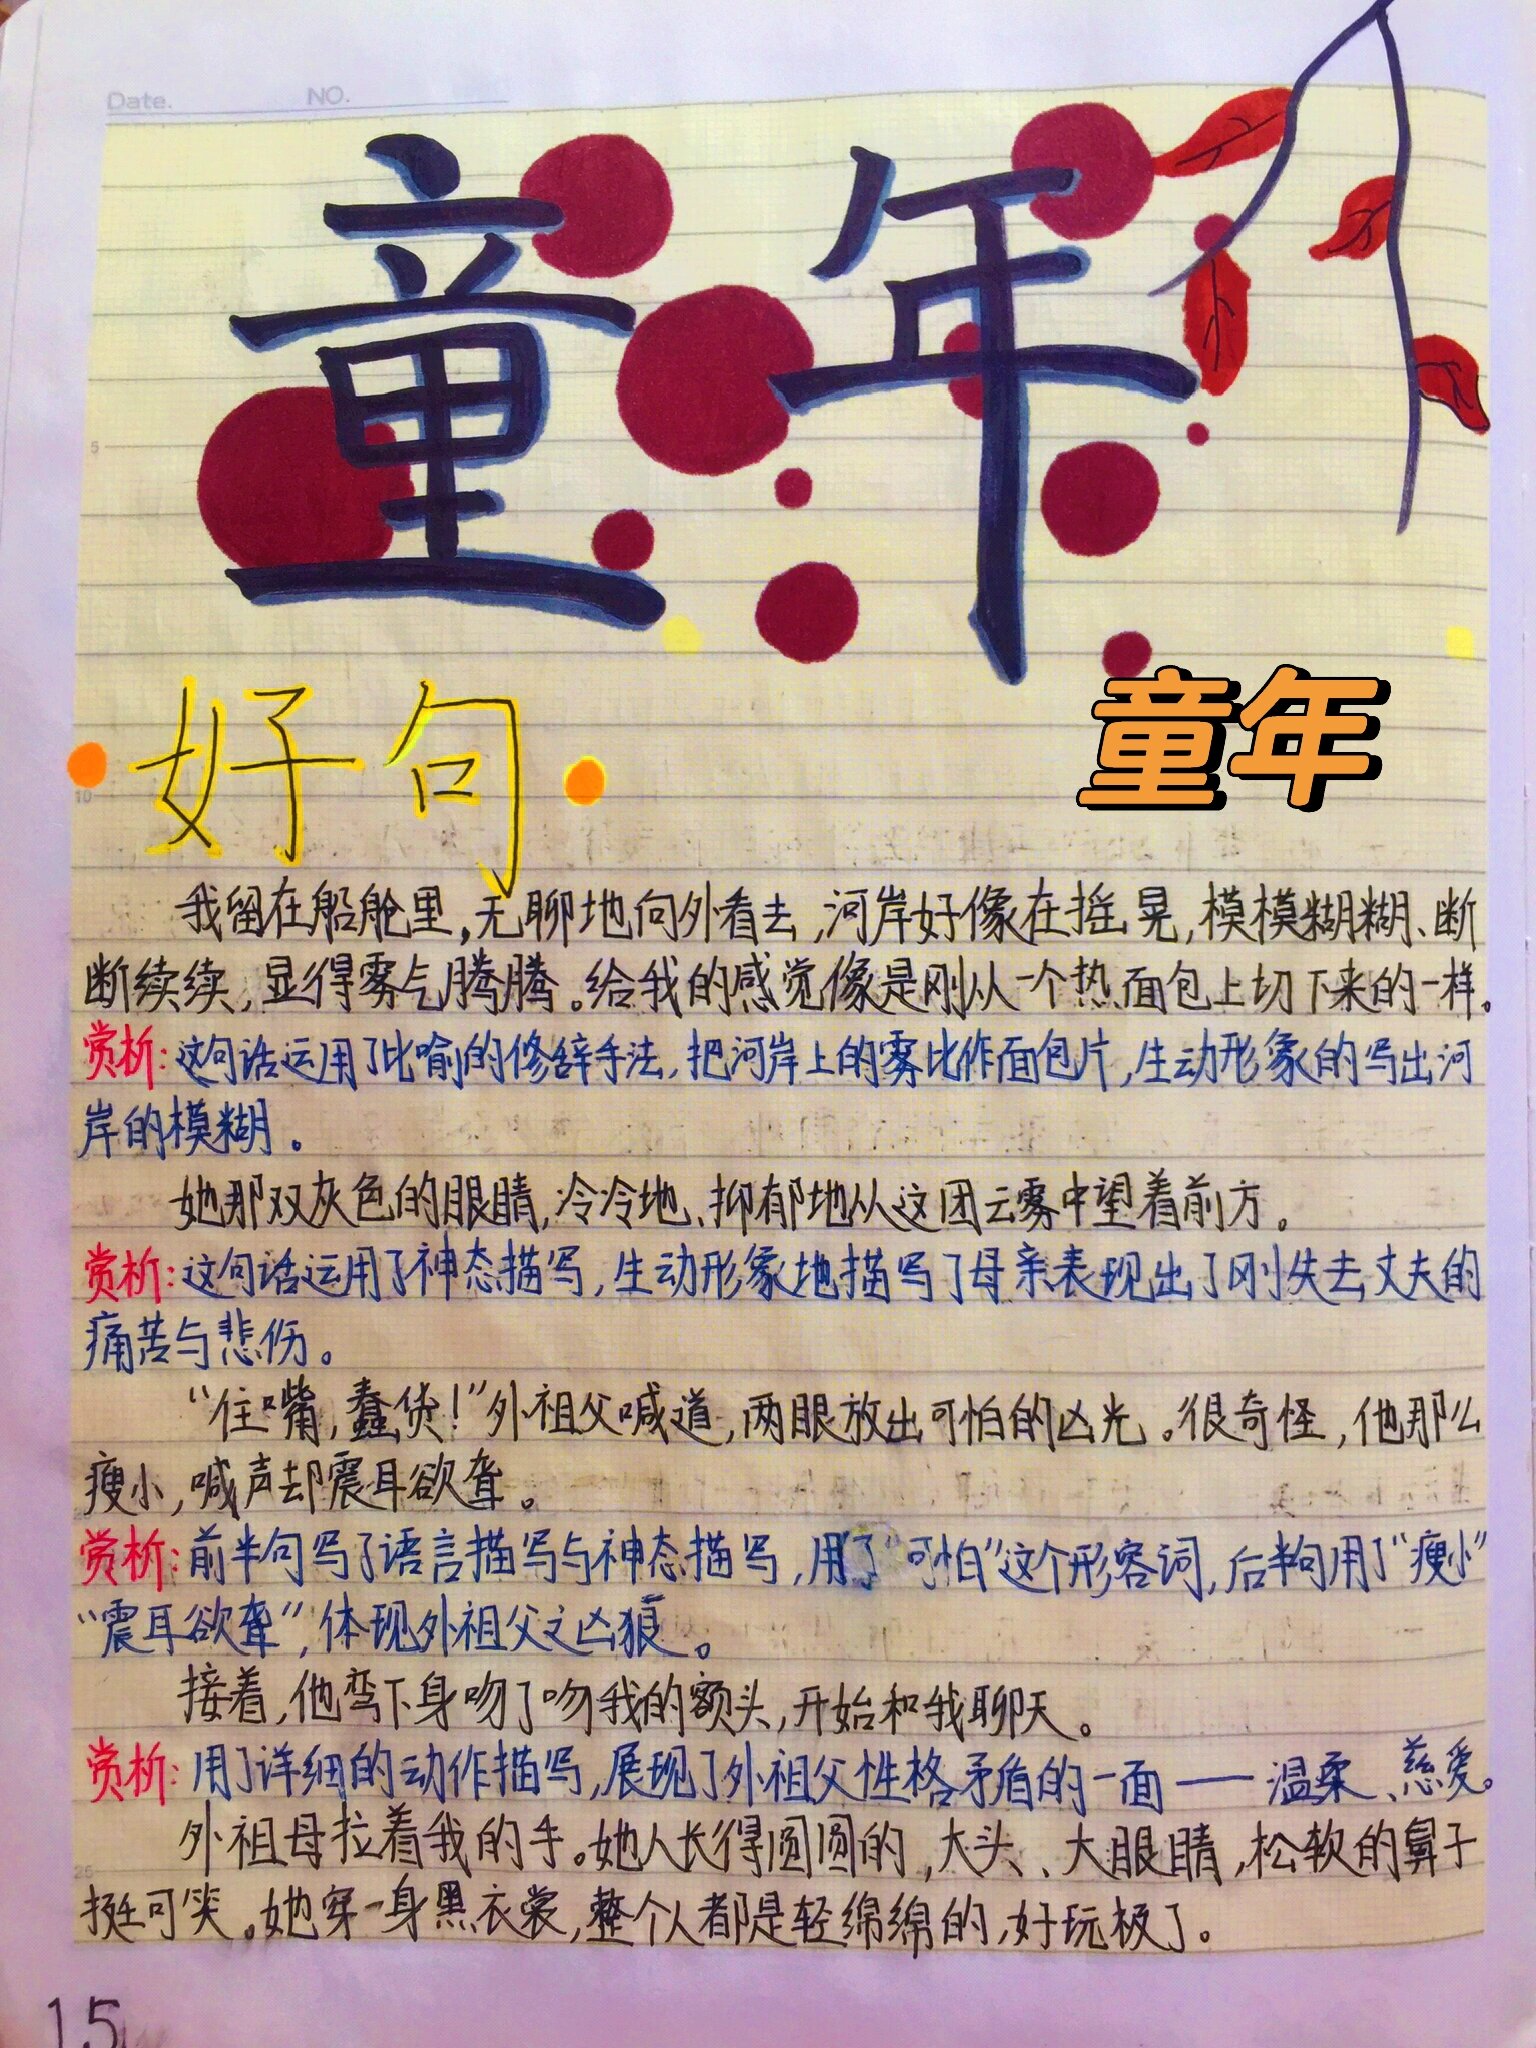 Date. NO.
童年
童年
好句
我留在船舱里，无聊地向外看去，河岸好像在摇晃，模模糊糊、断
断续续，显得雾气腾腾。给我的感觉像是刚从一个热面包上切下来的一样。
赏析：这句话运用了比喻的修辞手法，把河岸上的雾比作面包片，生动形象的写出河
岸的模糊。
她那双灰色的眼睛，冷冷地、抑郁地从这团云雾中望着前方。
赏析：这句话运用了神态描写，生动形象地描写了母亲表现出了刚失去丈夫的
痛苦与悲伤。
“住嘴，蠢货！”外祖父喊道，两眼放出可怕的凶光。很奇怪，他那么
瘦小，喊声却震耳欲聋。
赏析：前半句写了语言描写与神态描写，用了“可怕”这个形容词，后半句用了“瘦小”
“震耳欲聋”，体现外祖父之凶狠。
接着，他弯下身吻了吻我的额头，开始和我聊天。
赏析：用了详细的动作描写，展现了外祖父性格矛盾的一面——温柔、慈爱。
外祖母拉着我的手。她人长得圆圆的，大头、大眼睛，松软的鼻子
挺可笑。她穿一身黑衣裳，整个人都是轻绵绵的，好玩极了。
15